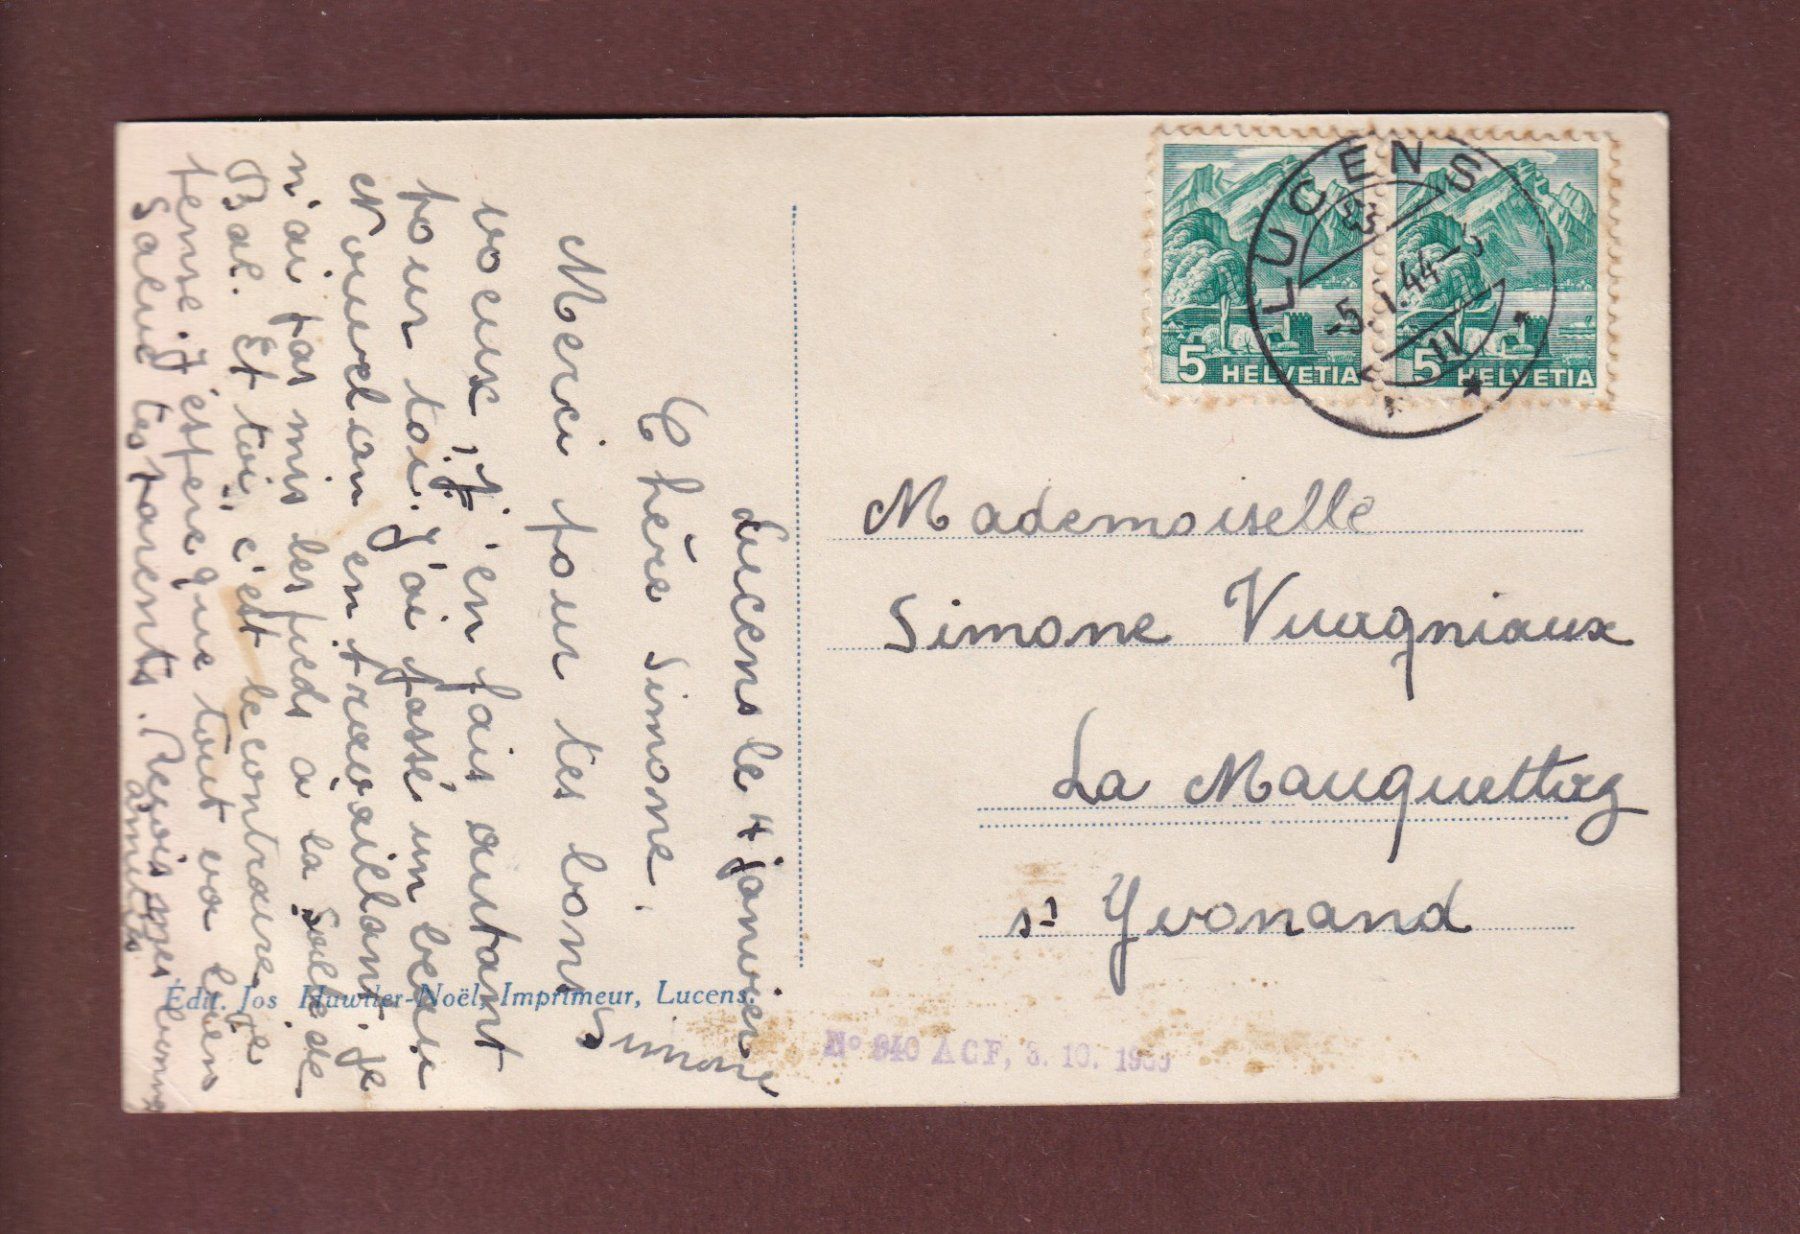 Lucens le 4 janvier
Chère Simone.
Merci pour tes bons
voeux. J'en fais autant
pour toi. J'ai passé un beau
Nouvel an en travaillant. je
n'ai pas mis les pieds à la Salle de
Bal. Et toi, c'est le contraire je
pense. J'espère que tout va bien
Salue tes parents. Reçois mes bonnes
amitiés
Simone
LUCENS
-5.1.44-
11
5 HELVETIA
5 HELVETIA
Mademoiselle
Simone Vuagniaux
La Mauguettaz
s/ Yvonand
Edit. Jos Huwiler-Noël, Imprimeur, Lucens.
No 940 ACF, 3. 10. 19